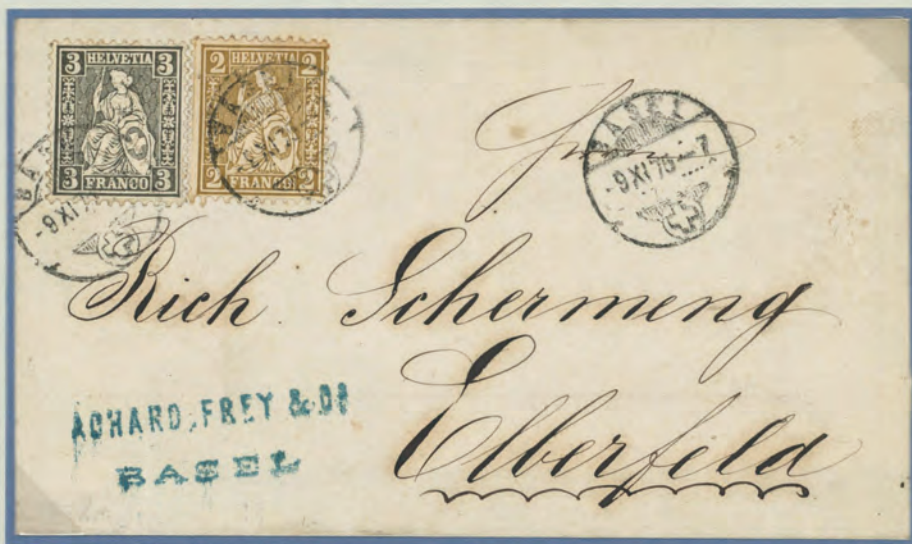 3 HELVETIA 3
3 FRANCO 3
2 HELVETIA 2
2 FRANCO 2
BASEL
-9 XI 76 - 7
-9 XI
Rich. Schermeng
Elberfeld
ACHARD, FREY & Co
BASEL